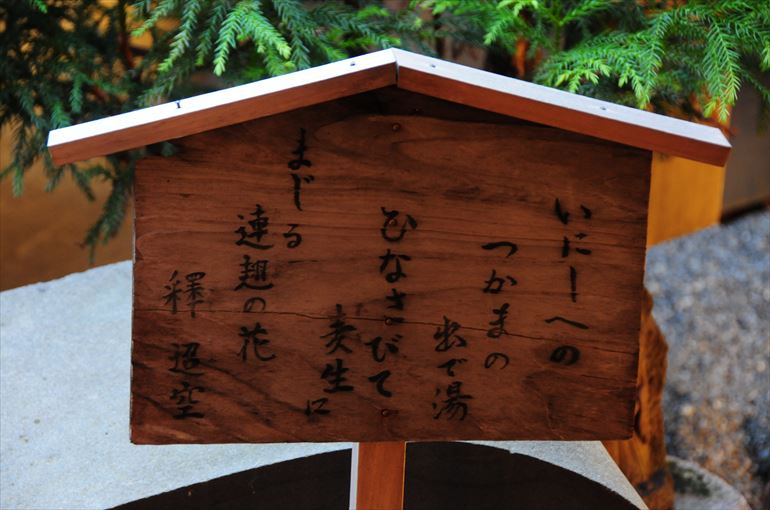 いにしへの
つかまの
出で湯
ひなさびて
麦生に
まじる
連翹の花
釋 迢空